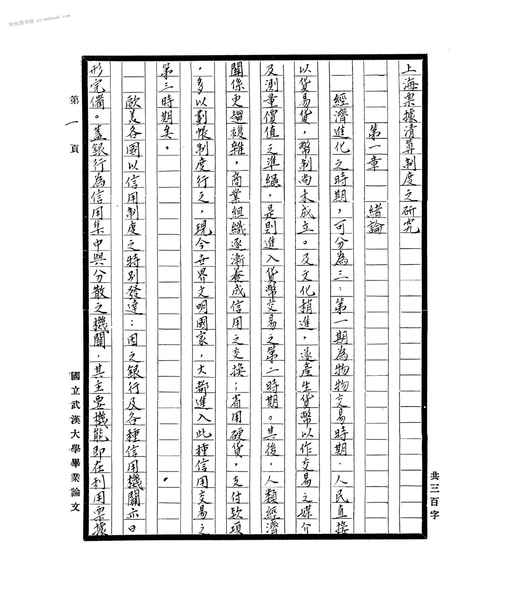 上海票據清算制度之研究
第一章 緒論
經濟進化之時期，可分為三：第一期為物物交易時期，人民直接
以貨易貨，幣制尚未成立。及文化稍進，遂產生貨幣以作交易之媒介
及測量價值之準繩，是則進入貨幣交易之第二時期。其後，人類經濟
關係更趨複雜，商業組織逐漸養成信用之交換；省用硬貨，支付款項
，多以劃帳制度行之，現今世界文明國家，大都進入此種信用交易之
第三時期矣。
歐美各國以信用制度之特別發達：因之銀行及各種信用機關亦日
形完備。蓋銀行為信用集中與分散之機關，其主要機能即在利用票據
第 1 頁
國立武漢大學畢業論文
共三百字